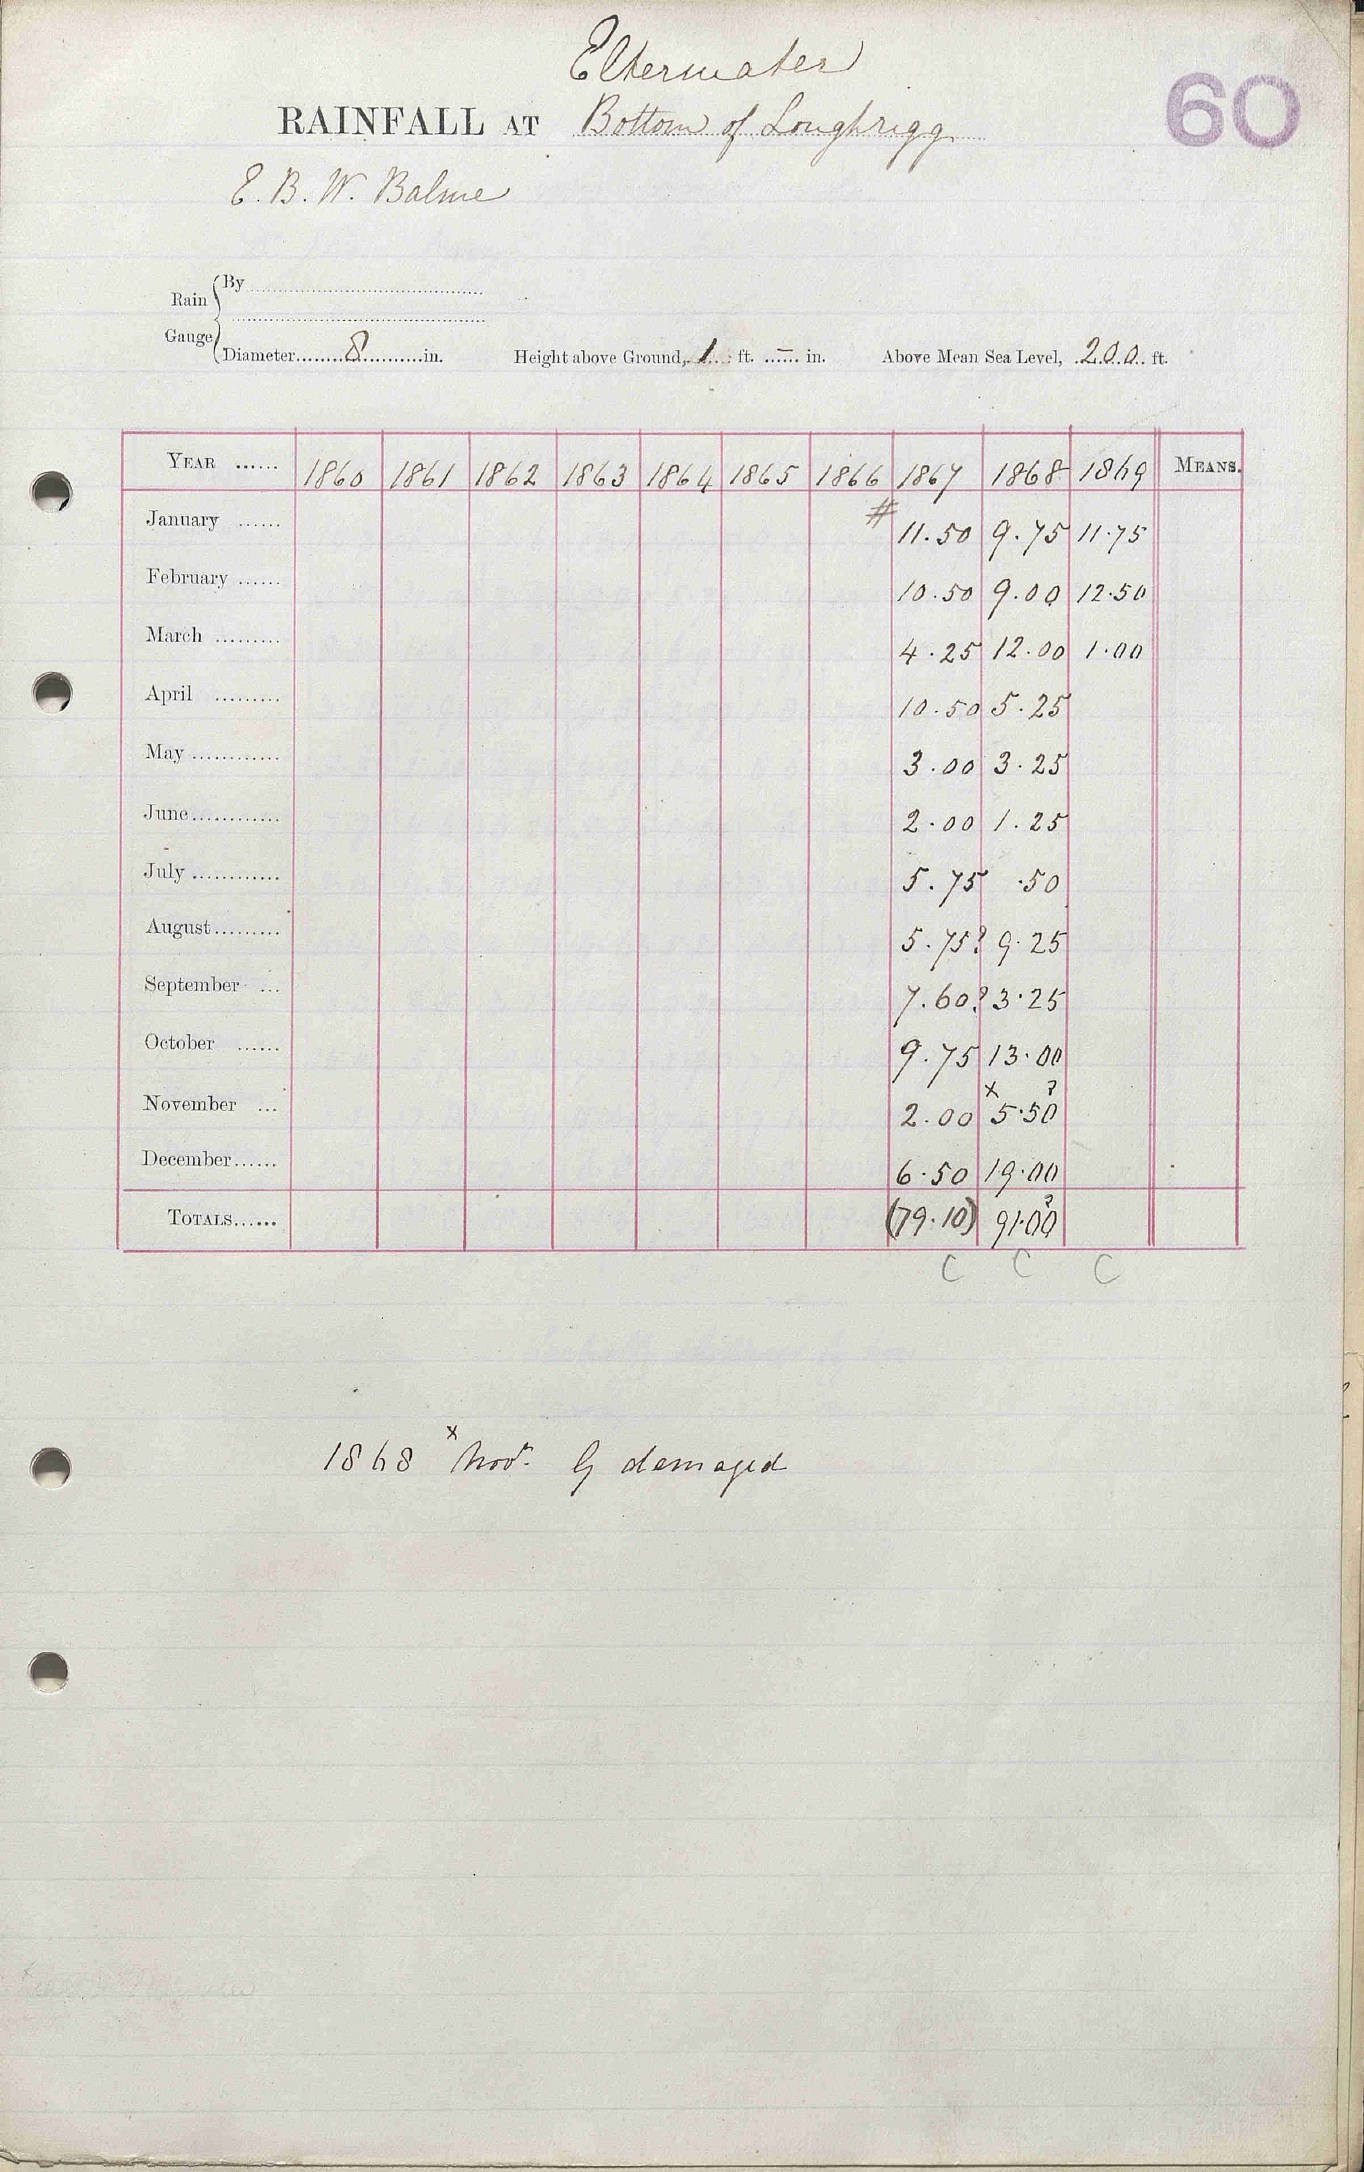 Elterwater
60
RAINFALL AT Bottom of Loughrigg
E. B. W. Balme
Rain Gauge
By
Diameter 8 in. Height above Ground, 1 ft. – in. Above Mean Sea Level, 200 ft.
YEAR 1860 1861 1862 1863 1864 1865 1866 1867 1868 1869 MEANS.
January # 11.50 9.75 11.75
February 10.50 9.00 12.50
March 4.25 12.00 1.00
April 10.50 5.25
May 3.00 3.25
June 2.00 1.25
July 5.75 .50
August 5.75? 9.25
September 7.60? 3.25
October 9.75 13.00
November 2.00 x 5.50 ?
December 6.50 19.00
TOTALS (79.10) 91.00 ?
C C C
1868 x Nov. G damaged